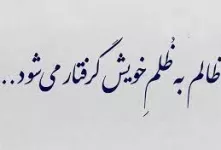 ظالم به ظُلمِ خویش گرفتار می‌شود..